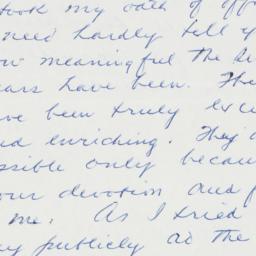 took my oath of off
need hardly tell y
ow meaningful the
ears have been. The
ve been truly exc
nd enriching. They
ssible only becau
our devotion and
me. As I tried
ay publicly at the